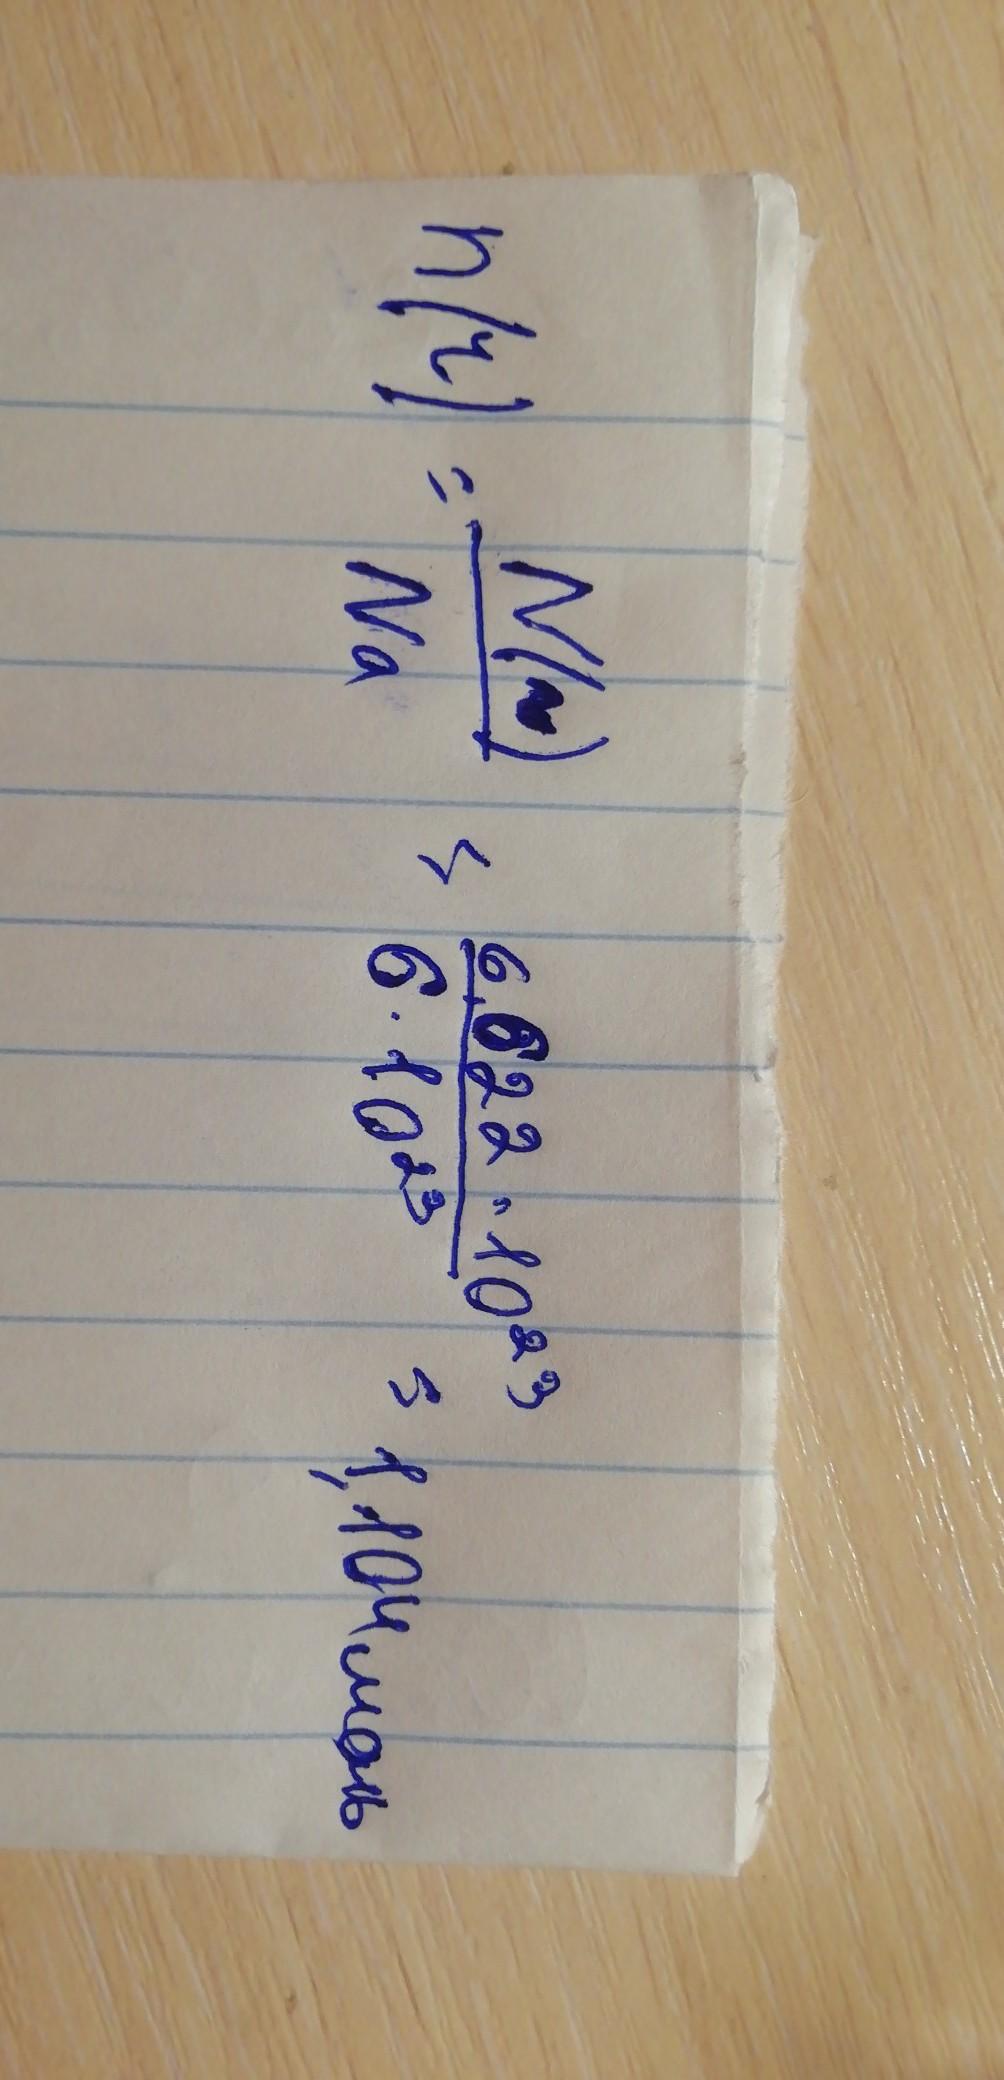 n(ч) = N(ч) / Na = 6,622 · 10²³ / 6 · 10²³ = 1,104 моль